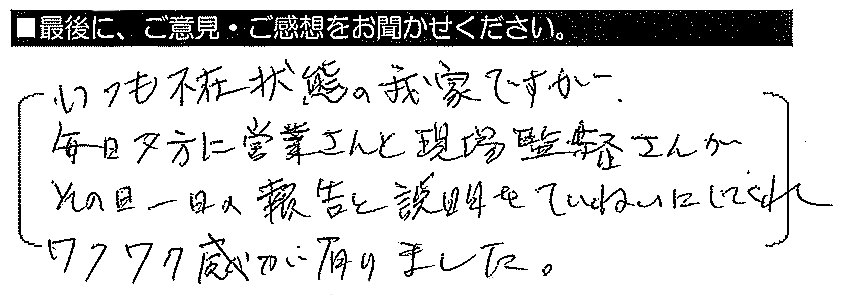 ■最後に、ご意見・ご感想をお聞かせください。
いつも不在状態の我家ですが、
毎日夕方に営業さんと現場監督さんが
その日一日の報告と説明をていねいにしてくれ
ワクワク感が有りました。